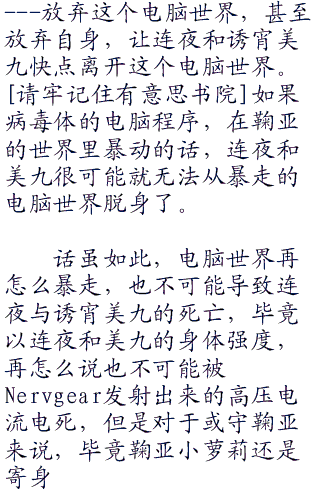 ---放弃这个电脑世界，甚至
放弃自身，让连夜和诱宵美
九快点离开这个电脑世界。
[请牢记住有意思书院]如果
病毒体的电脑程序，在鞠亚
的世界里暴动的话，连夜和
美九很可能就无法从暴走的
电脑世界脱身了。
话虽如此，电脑世界再
怎么暴走，也不可能导致连
夜与诱宵美九的死亡，毕竟
以连夜和美九的身体强度，
再怎么说也不可能被
Nervgear发射出来的高压电
流电死，但是对于或守鞠亚
来说，毕竟鞠亚小萝莉还是
寄身